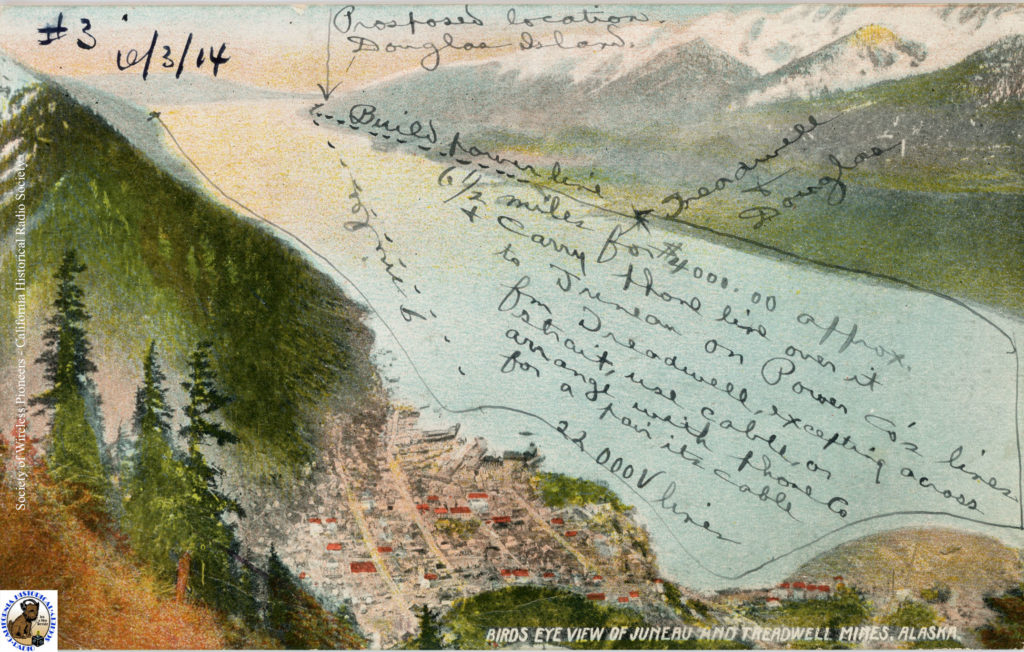 #3
Prosposed location.
Douglas Island.
Build power line
6 1/2 miles for $4000.00 approx.
& Carry phone line over it
to Juneau on Power Co's lines
fm Treadwell, excepting across
strait, use cable, or
arrange with phone Co
for a pair its cable
22 000V line
Treadwell
&
Douglas
Society of Wireless Pioneers - California Historical Radio Society
BIRDS EYE VIEW OF JUNEAU AND TREADWELL MINES, ALASKA.